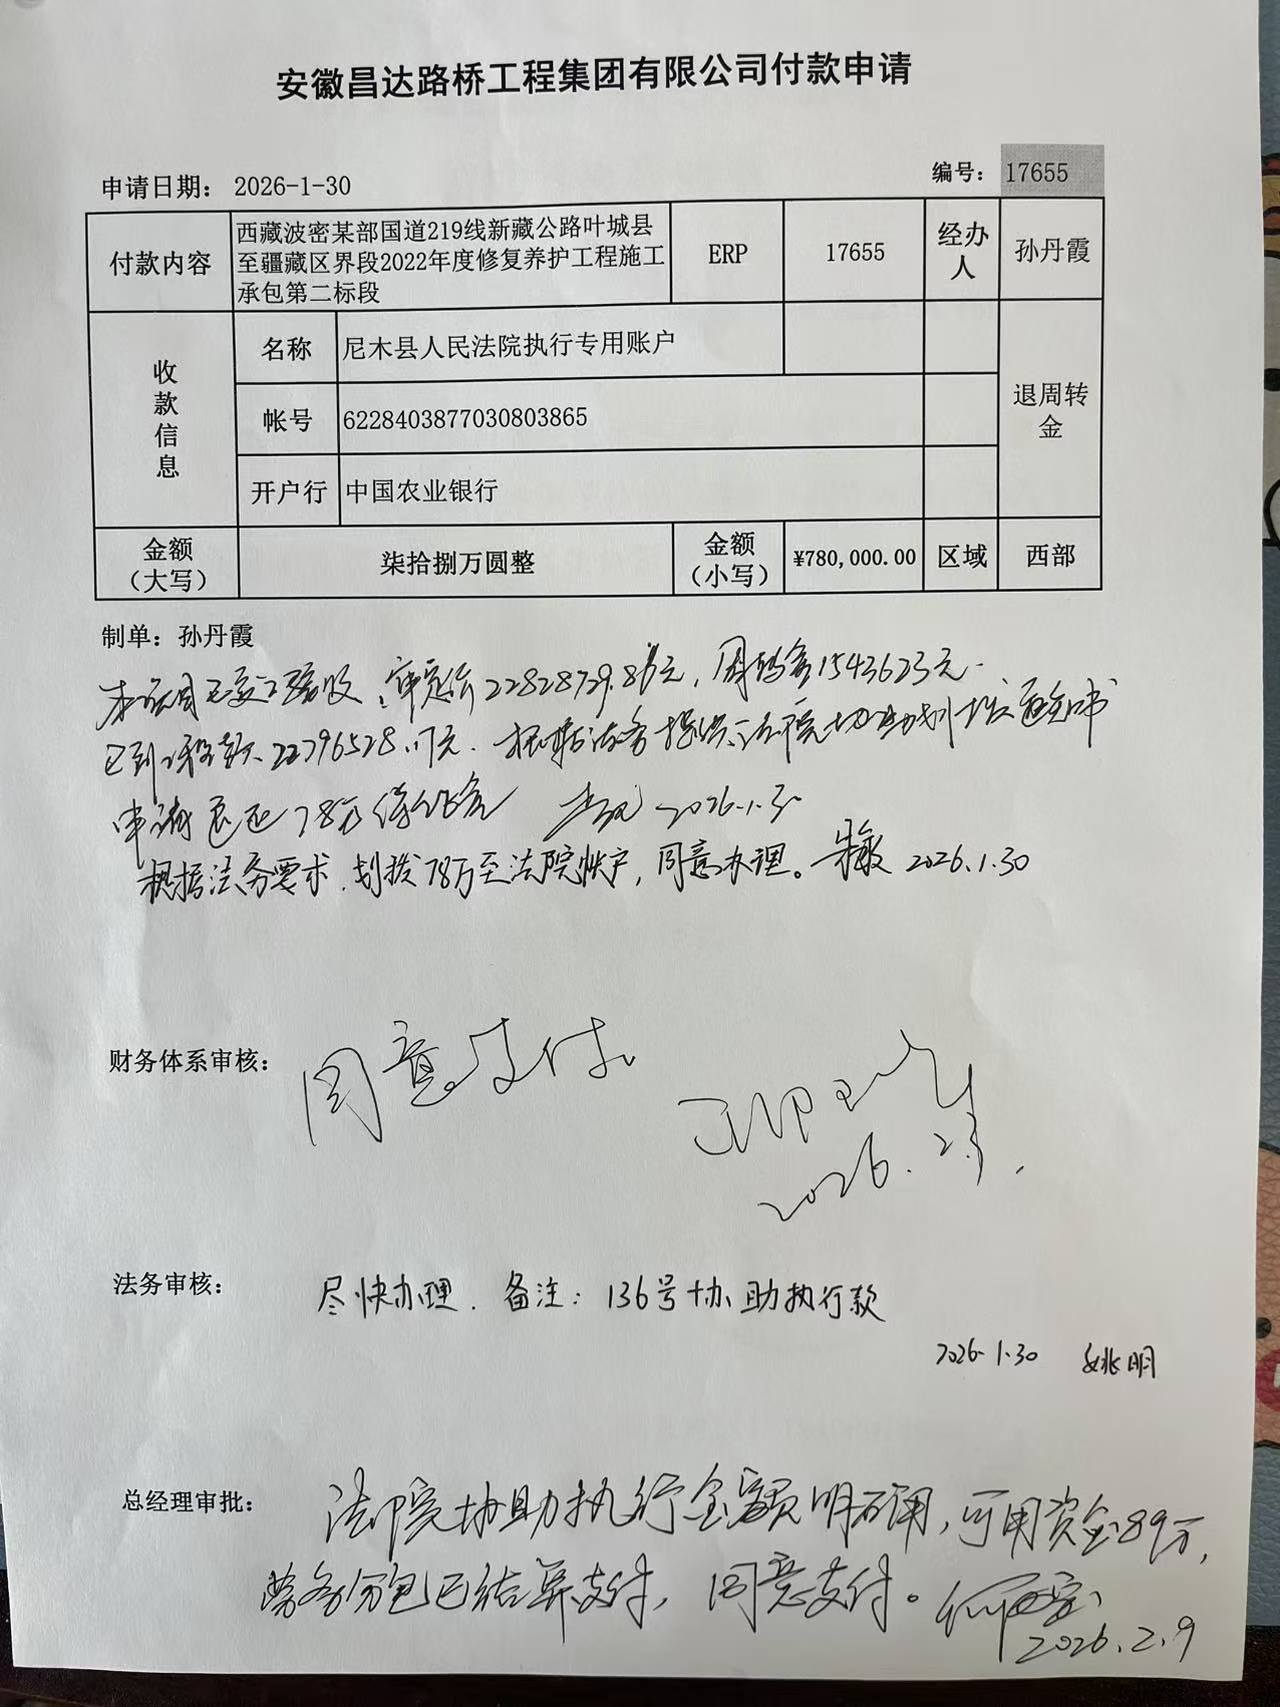 安徽昌达路桥工程集团有限公司付款申请
申请日期： 2026-1-30
编号： 17655
付款内容
西藏波密某部国道219线新藏公路叶城县
至疆藏区界段2022年度修复养护工程施工
承包第二标段
ERP
17655
经办
人
孙丹霞
收
款
信
息
名称
尼木县人民法院执行专用账户
帐号
6228403877030803865
开户行
中国农业银行
退周转
金
金额
（大写）
柒拾捌万圆整
金额
（小写）
¥780,000.00
区域
西部
制单：孙丹霞
本项目已交工验收，审定价22828729.86元，周转金1543623元.
已到工程款22796528.17元. 根据法务提供法院协助划拨通知书
申请退还78万 2026.1.30
根据法务要求，划拨78万至法院帐户，同意办理。 2026.1.30
财务体系审核：
同意支付
2026.2.3
法务审核：
尽快办理. 备注：136号协助执行款
2026.1.30 姚明
总经理审批：
法院协助执行金额明确，可用资金89万，
劳务分包已结算支付，同意支付。
2026.2.9